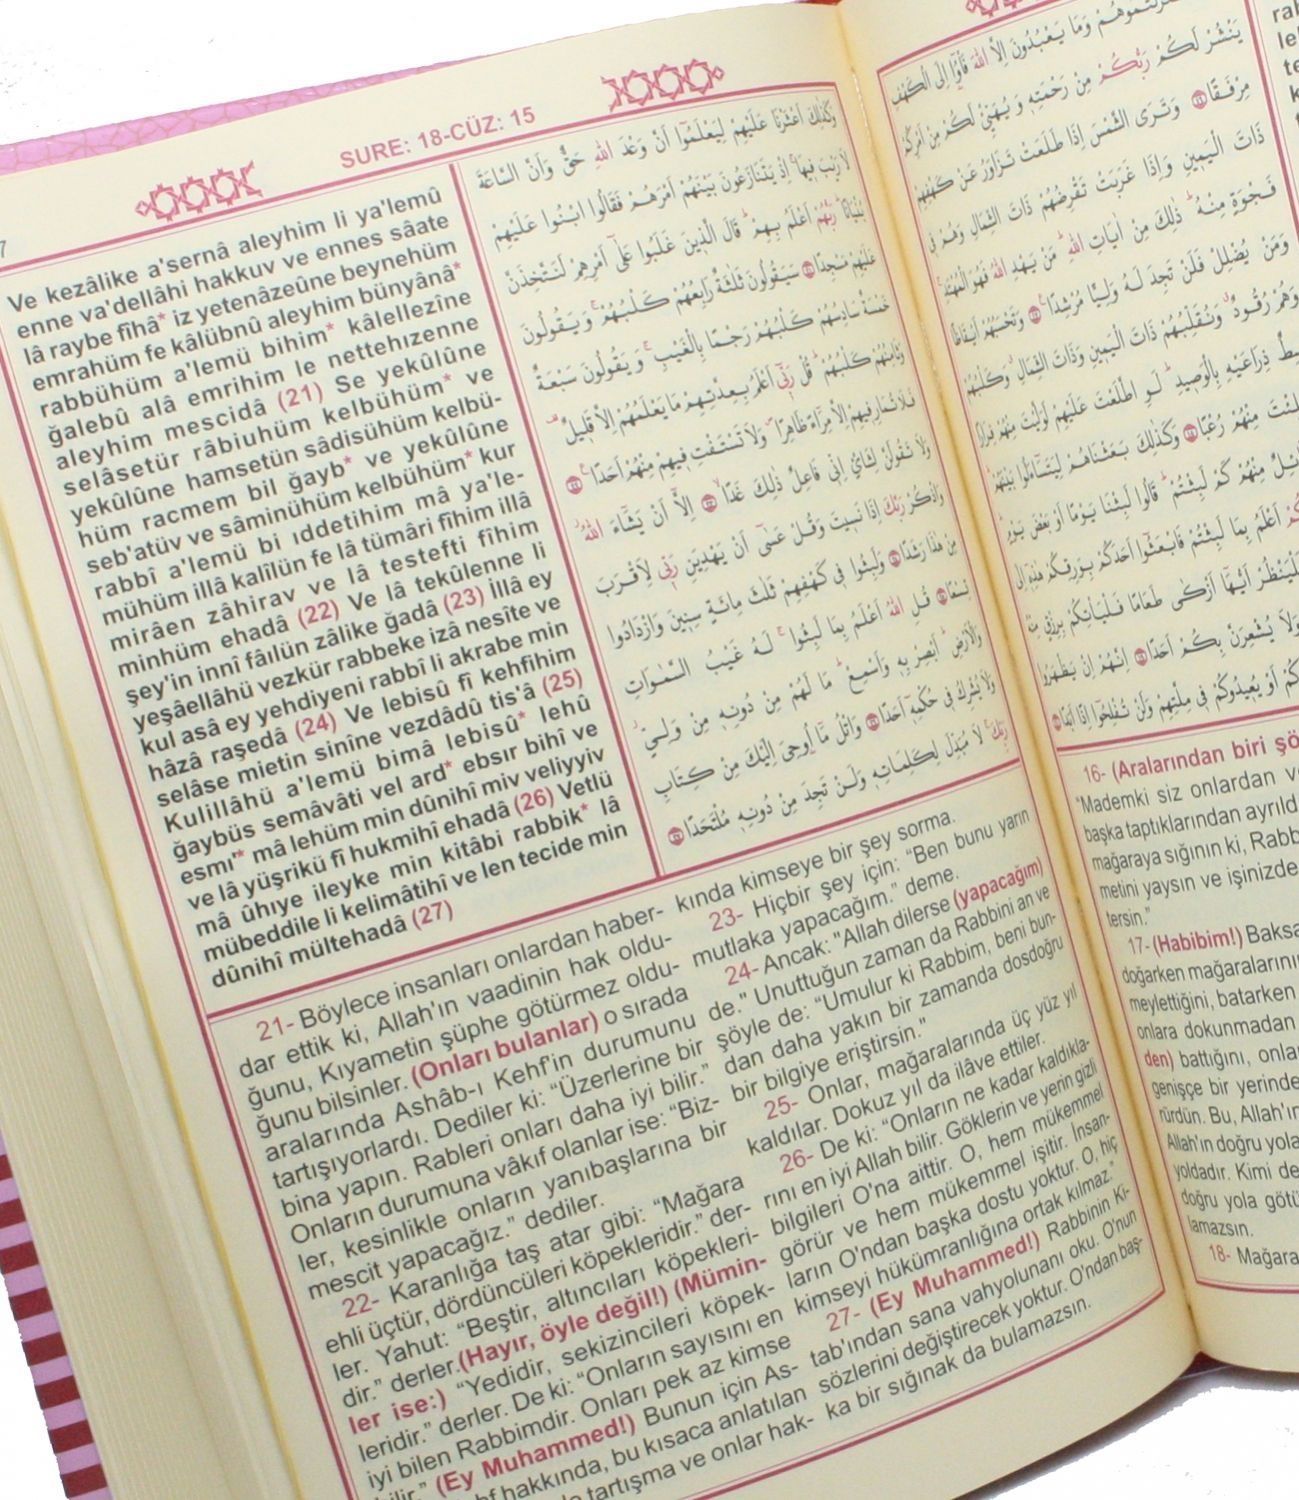 SURE: 18-CÜZ: 15
7
Ve kezâlike a'sernâ aleyhim li ya'lemû
enne va'dellâhi hakkuv ve ennes sâate
lâ raybe fîhâ* iz yetenâzeûne beynehüm
emrahüm fe kâlübnû aleyhim bünyânâ*
rabbühüm a'lemü bihim* kâlellezîne
ğalebû alâ emrihim le nettehızenne
aleyhim mescidâ (21) Se yekûlûne
selâsetür râbiuhüm kelbühüm* ve
yekûlûne hamsetün sâdisühüm kelbü-
hüm racmem bil ğayb* ve yekûlûne
seb'atüv ve sâminühüm kelbühüm* kur
rabbî a'lemü bi ıddetihim mâ ya'le-
mühüm illâ kalîlün fe lâ tümâri fîhim illâ
mirâen zâhirav ve lâ testefti fîhim
minhüm ehadâ (22) Ve lâ tekûlenne li
şey'in innî fâılün zâlike ğadâ (23) İllâ ey
yeşâellâhü vezkür rabbeke izâ nesîte ve
kul asâ ey yehdiyeni rabbî li akrabe min
hâzâ raşedâ (24) Ve lebisû fî kehfihim
selâse mietin sinîne vezdâdû tis'â (25)
Kulillâhü a'lemü bimâ lebisû* lehû
ğaybüs semâvâti vel ard* ebsır bihî ve
esmı'* mâ lehüm min dûnihî miv veliyyiv
ve lâ yüşrikü fî hukmihî ehadâ (26) Vetlü
mâ ûhıye ileyke min kitâbi rabbik* lâ
mübeddile li kelimâtihî ve len tecide min
dûnihî mültehadâ (27)
وَكَذٰلِكَ اَعْثَرْنَا عَلَيْهِمْ لِيَعْلَمُٓوا اَنَّ وَعْدَ اللّٰهِ حَقٌّ وَاَنَّ السَّاعَةَ
لَا رَيْبَ فٖيهَاۚ اِذْ يَتَنَازَعُونَ بَيْنَهُمْ اَمْرَهُمْ فَقَالُوا ابْنُوا عَلَيْهِمْ
بُنْيَانًاۜ رَبُّهُمْ اَعْلَمُ بِهِمْۜ قَالَ الَّذٖينَ غَلَبُوا عَلٰٓى اَمْرِهِمْ لَنَتَّخِذَنَّ
عَلَيْهِمْ مَسْجِدًا سَيَقُولُونَ ثَلٰثَةٌ رَابِعُهُمْ كَلْبُهُمْۚ وَيَقُولُونَ
خَمْسَةٌ سَادِسُهُمْ كَلْبُهُمْ رَجْمًا بِالْغَيْبِۚ وَيَقُولُونَ سَبْعَةٌ
وَثَامِنُهُمْ كَلْبُهُمْۜ قُلْ رَبّٖٓي اَعْلَمُ بِعِدَّتِهِمْ مَا يَعْلَمُهُمْ اِلَّا قَلٖيلٌ
فَلَا تُمَارِ فٖيهِمْ اِلَّا مِرَٓاءً ظَاهِرًا وَلَا تَسْتَفْتِ فٖيهِمْ مِنْهُمْ اَحَدًا
وَلَا تَقُولَنَّ لِشَا۬يْءٍ اِنّٖي فَاعِلٌ ذٰلِكَ غَدًا اِلَّٓا اَنْ يَشَٓاءَ اللّٰهُ
وَاذْكُرْ رَبَّكَ اِذَا نَسٖيتَ وَقُلْ عَسٰٓى اَنْ يَهْدِيَنِ رَبّٖي لِاَقْرَبَ
مِنْ هٰذَا رَشَدًا وَلَبِثُوا فٖي كَهْفِهِمْ ثَلٰثَ مِائَةٍ سِنٖينَ وَازْدَادُوا
تِسْعًا قُلِ اللّٰهُ اَعْلَمُ بِمَا لَبِثُواۚ لَهُ غَيْبُ السَّمٰوَاتِ
وَالْاَرْضِۜ اَبْصِرْ بِهٖ وَاَسْمِعْۜ مَا لَهُمْ مِنْ دُونِهٖ مِنْ وَلِيٍّ
وَلَا يُشْرِكُ فٖي حُكْمِهٖٓ اَحَدًا وَاتْلُ مَٓا اُو۫حِيَ اِلَيْكَ مِنْ كِتَابِ
رَبِّكَۚ لَا مُبَدِّلَ لِكَلِمَاتِهٖ وَلَنْ تَجِدَ مِنْ دُونِهٖ مُلْتَحَدًا
21- Böylece insanları onlardan haber-
dar ettik ki, Allah'ın vaadinin hak oldu-
ğunu, Kıyametin şüphe götürmez oldu-
ğunu bilsinler. (Onları bulanlar) o sırada
aralarında Ashâb-ı Kehf'in durumunu
tartışıyorlardı. Dediler ki: "Üzerlerine bir
bina yapın. Rableri onları daha iyi bilir."
Onların durumuna vâkıf olanlar ise: "Biz-
ler, kesinlikle onların yanıbaşlarına bir
mescit yapacağız." dediler.
22- Karanlığa taş atar gibi: "Mağara
ehli üçtür, dördüncüleri köpekleridir." der-
ler. Yahut: "Beştir, altıncıları köpekleri-
dir." derler.(Hayır, öyle değil!) (Mümin-
ler ise:) "Yedidir, sekizincileri köpek-
leridir." derler. De ki: "Onların sayısını en
iyi bilen Rabbimdir. Onları pek az kimse
bilir." (Ey Muhammed!) Bunun için As-
hakkında, bu kısaca anlatılan
tartışma ve onlar hak-
kında kimseye bir şey sorma.
23- Hiçbir şey için: "Ben bunu yarın
mutlaka yapacağım." deme.
24- Ancak: "Allah dilerse (yapacağım)
de." Unuttuğun zaman da Rabbini an ve
şöyle de: "Umulur ki Rabbim, beni bun-
dan daha yakın bir zamanda dosdoğru
bir bilgiye eriştirsin."
25- Onlar, mağaralarında üç yüz yıl
kaldılar. Dokuz yıl da ilâve ettiler.
26- De ki: "Onların ne kadar kaldıkla-
rını en iyi Allah bilir. Göklerin ve yerin gizli
bilgileri O'na aittir. O, hem mükemmel
görür ve hem mükemmel işitir. İnsan-
ların O'ndan başka dostu yoktur. O, hiç
kimseyi hükümranlığına ortak kılmaz."
27- (Ey Muhammed!) Rabbinin Ki-
tab'ından sana vahyolunanı oku. O'nun
sözlerini değiştirecek yoktur. O'ndan baş-
ka bir sığınak da bulamazsın.
وَمَا يَعْبُدُونَ اِلَّا اللّٰهَ فَأْوُٓا اِلَى الْكَهْفِ
يَنْشُرْ لَكُمْ رَبُّكُمْ مِنْ رَحْمَتِهٖ وَيُهَيِّئْ لَكُمْ مِنْ اَمْرِكُمْ
مِرْفَقًا وَتَرَى الشَّمْسَ اِذَا طَلَعَتْ تَزَاوَرُ عَنْ كَهْفِهِمْ
ذَاتَ الْيَمٖينِ وَاِذَا غَرَبَتْ تَقْرِضُهُمْ ذَاتَ الشِّمَالِ وَهُمْ فٖي
فَجْوَةٍ مِنْهُۜ ذٰلِكَ مِنْ اٰيَاتِ اللّٰهِۜ مَنْ يَهْدِ اللّٰهُ فَهُوَ الْمُهْتَدِۚ
وَمَنْ يُضْلِلْ فَلَنْ تَجِدَ لَهُ وَلِيًّا مُرْشِدًا وَتَحْسَبُهُمْ اَيْقَاظًا
وَهُمْ رُقُودٌ وَنُقَلِّبُهُمْ ذَاتَ الْيَمٖينِ وَذَاتَ الشِّمَالِ وَكَلْبُهُمْ
ذِرَاعَيْهِ بِالْوَصٖيدِۜ لَوِ اطَّلَعْتَ عَلَيْهِمْ لَوَلَّيْتَ مِنْهُمْ فِرَارًا
مِنْهُمْ رُعْبًا وَكَذٰلِكَ بَعَثْنَاهُمْ لِيَتَسَٓاءَلُوا بَيْنَهُمْ
مِنْهُمْ كَمْ لَبِثْتُمْۜ قَالُوا لَبِثْنَا يَوْمًا اَوْ بَعْضَ يَوْمٍ
اَعْلَمُ بِمَا لَبِثْتُمْ فَابْعَثُٓوا اَحَدَكُمْ بِوَرِقِكُمْ هٰذِهٖٓ اِلَى
فَلْيَنْظُرْ اَيُّهَٓا اَزْكٰى طَعَامًا فَلْيَأْتِكُمْ بِرِزْقٍ مِنْهُ
وَلَا يُشْعِرَنَّ بِكُمْ اَحَدًا اِنَّهُمْ اِنْ يَظْهَرُوا
اَوْ يُعٖيدُوكُمْ فٖي مِلَّتِهِمْ وَلَنْ تُفْلِحُٓوا اِذًا اَبَدًا
16- (Aralarından biri
"Mademki siz onlardan
başka taptıklarından
mağaraya sığının ki,
metini yaysın ve işinizde
tersin."
17- (Habibim!)
doğarken
meylettiğini, batarken
onlara dokunmadan
den) battığını,
genişçe bir yerinde
rürdün. Bu, Allah'ın
Allah'ın doğru
yoldadır. Kimi de
doğru yola
lamazsın.
18- Mağara